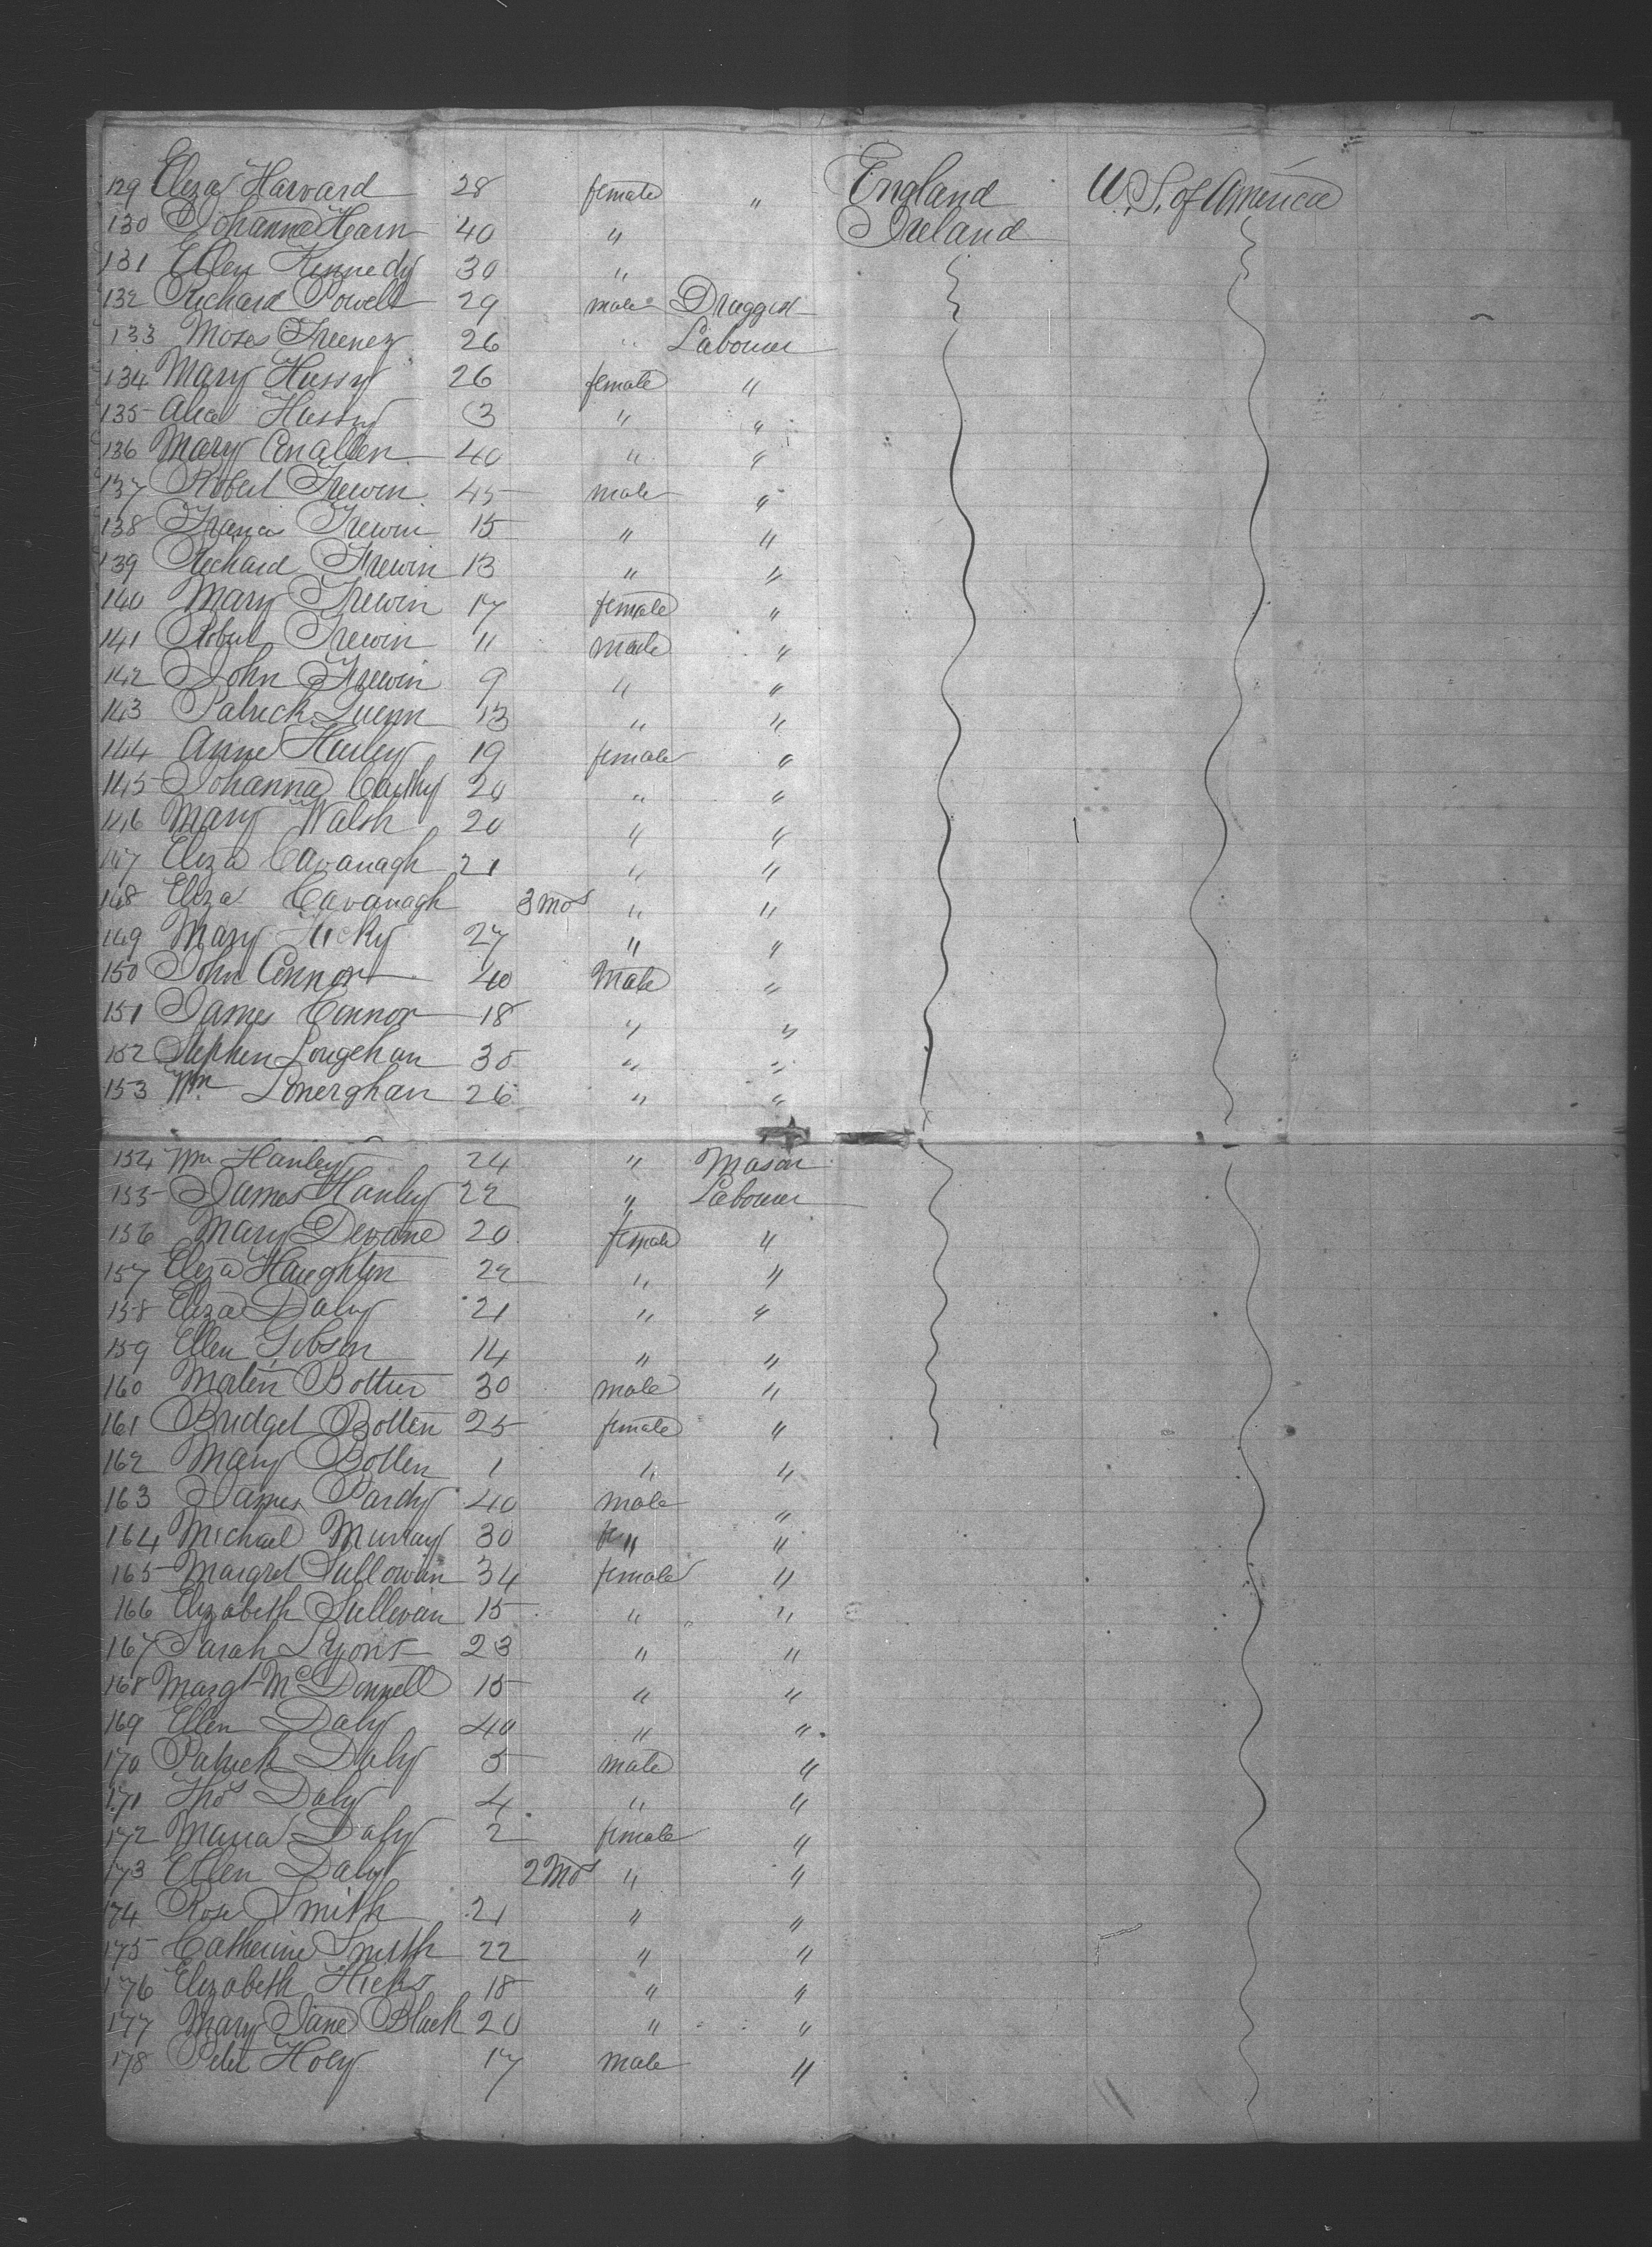 129 Eliza Harvard 28 female " England U.S. of America
130 Johanna Hearn 40 " Ireland
131 Ellen Kennedy 30 "
132 Richard Powell 29 male Druggist
133 Moses Freeney 26 " Labourer
134 Mary Hussy 26 female "
135 Alice Hussy 3 " "
136 Mary Cnallen 40 " "
137 Robert Frewin 45 male "
138 Francis Frewin 15 " "
139 Richard Frewin 13 " "
140 Mary Frewin 17 female "
141 Robert Frewin 11 male "
142 John Frewin 9 " "
143 Patrick Quinn 13 " "
144 Anne Hurley 19 female "
145 Johanna Carthy 20 " "
146 Mary Walsh 20 " "
147 Eliza Cavanagh 21 " "
148 Eliza Cavanagh 3 Mos " "
149 Mary Hicky 27 " "
150 John Connor 40 Male "
151 James Connor 18 " "
152 Stephen Longehan 35 " "
153 Wm Lonerghan 26 " "
154 Wm Hanley 24 " Mason
155 James Hanley 22 " Labourer
156 Mary Devane 20 female "
157 Eliza Haughton 22 " "
158 Eliza Daly 21 " "
159 Ellen Gibson 14 " "
160 Martin Botten 30 male "
161 Bridget Botten 25 female "
162 Mary Botten 1 " "
163 James Pardy 40 male "
164 Michael Murray 30 " "
165 Margret Sullowan 34 female "
166 Elizabeth Sullivan 15 " "
167 Sarah Lyons 23 " "
168 Margt McDonnell 15 " "
169 Ellen Daly 40 " "
170 Patrick Daly 5 male "
171 Thos Daly 4 " "
172 Maria Daly 2 female "
173 Ellen Daly 2 Mos " "
174 Rose Smith 21 " "
175 Catherine Smith 22 " "
176 Elizabeth Hicks 18 " "
177 Mary Jane Black 20 " "
178 Peter Hoey 17 male "